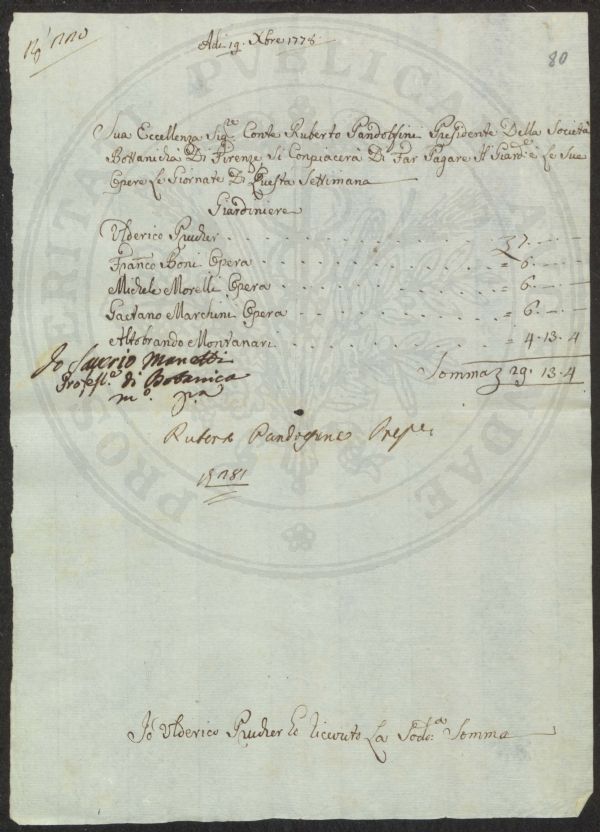 Adi 19. Xbre 1778
80
Sua Eccellenza Sig.re Conte Ruberto Pandolfini Presidente Della Società
Bottanicha Di Firenze Si Conpiacerà Di Far Pagare Al Giard.e Le Sue
Opere Le Giornate Di Questa Settimana
Giardiniere
Ulderico Prucher . . . . . . . . 7. — —
Fran.co Boni Opera . . . . . . . . = 6. — —
Michele Morelli Opera . . . . . . . . = 6. — —
Gaetano Marchini Opera . . . . . . . . = 6. — —
Altobrando Montanari . . . . . . . . = 4. 13. 4
Somma 29. 13. 4
Io Saverio Manetti
Profess.o di Botanica
m.o p.a
Ruberto Pandolfini Presid.e
Io Ulderico Prucher ò ricevuto La Sod.a Somma
PUBLICAE
PROSPERITATI